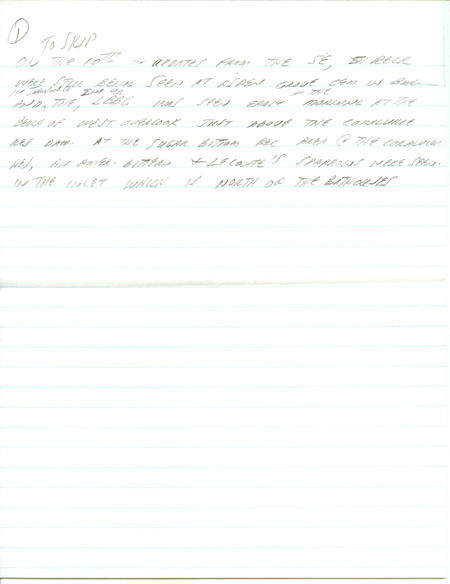 ①
TO SKIP
ON THE 10TH IN UPDATES FROM THE SE, RECR
WERE STILL BEING SEEN AT ASPEN GROVE CEM IN BURL
IN THE
AND, THE, LBBG WAS SEEN EARLY MORNING AT THE
BEACH OF WEST OVERLOOK JUST ABOVE THE CORALVILLE
RES DAM. AT THE SUGAR BOTTOM REC AREA @ THE CORALVILLE
RES, AN AMER. BITTERN + LECONTE'S SPARROWS WERE SEEN.
IN THE INLET WHICH IS NORTH OF THE BATHOUSES